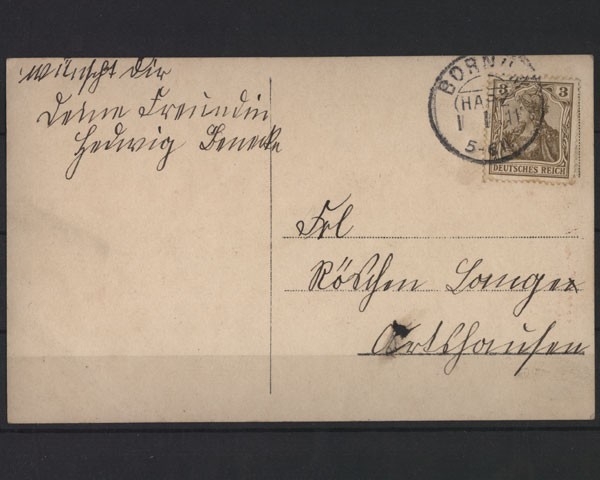 wünscht dir
Deine Freundin
Hedwig Benecke
BORNU
(HARZ
5-6N
3 3
DEUTSCHES REICH
Frl
Röschen Langer
Ortshausen